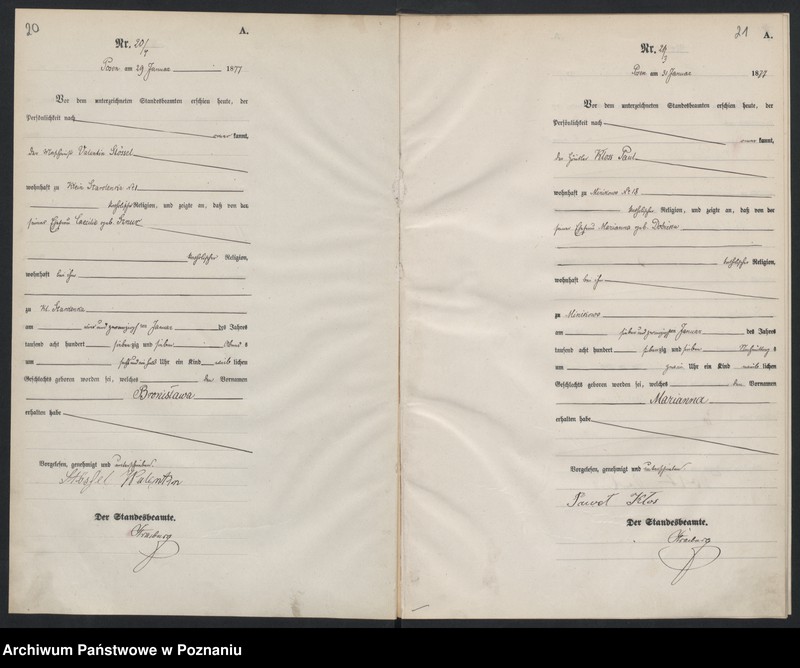 20
A.
Nr. 20/
Posen am 29 Januar 1877
Vor dem unterzeichneten Standesbeamten erschien heute, der
Persönlichkeit nach
kannt,
Der Valentin
wohnhaft zu Klein Starolenka
katholischer Religion, und zeigte an, daß von der
seiner Ehefrau geb.
katholischer Religion,
wohnhaft bei ihm
zu Kl. Starolenka
am und zwanzigsten Januar des Jahres
tausend acht hundert siebenzig und sieben
um Uhr ein Kind weiblichen
Geschlechts geboren worden sei, welches den Vornamen
Bronisława
erhalten habe
Vorgelesen, genehmigt und unterschrieben.
Der Standesbeamte.
21
A.
Nr.
Posen am 31 Januar 1877
Vor dem unterzeichneten Standesbeamten erschien heute, der
Persönlichkeit nach
kannt,
der Häusler Klos Paul
wohnhaft zu Minikowo No 18
katholischer Religion, und zeigte an, daß von der
seiner Ehefrau Marianna geb.
katholischer Religion,
wohnhaft bei ihm
zu Minikowo
am sieben und zwanzigsten Januar des Jahres
tausend acht hundert siebenzig und sieben
um Uhr ein Kind weiblichen
Geschlechts geboren worden sei, welches den Vornamen
Marianna
erhalten habe
Vorgelesen, genehmigt und unterschrieben
Paweł Klos
Der Standesbeamte.
Archiwum Państwowe w Poznaniu